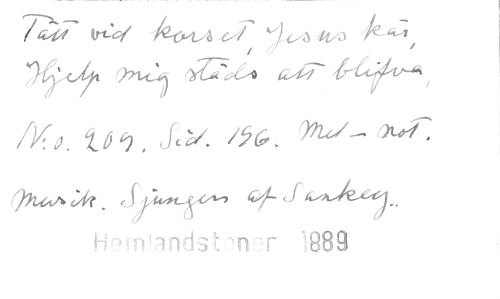 Tätt vid korset, Jesus kär,
Hjelp mig städs att blifva,
N:o. 209. Sid. 196. Med-not.
musik. Sjunges af Sankey..
Hemlandstoner 1889